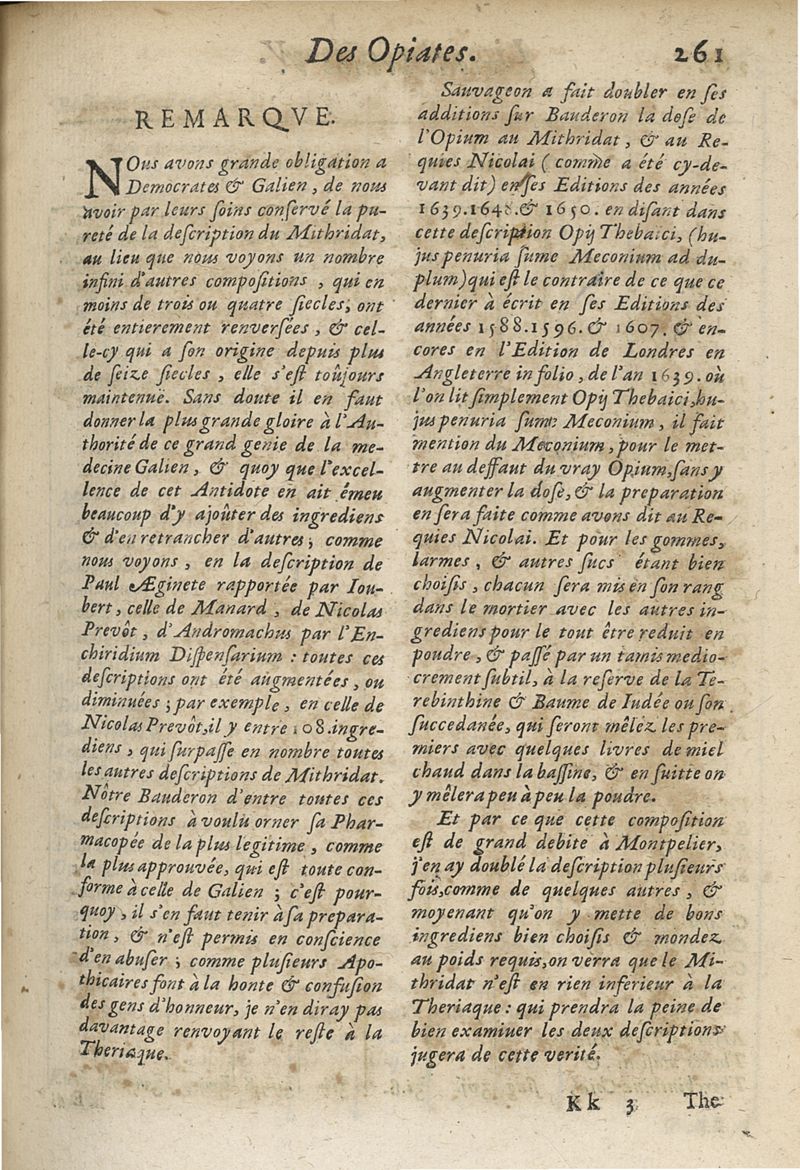 Des Opiates. 261
REMARQVE.
NOus avons grande obligation a
Democrates & Galien, de nous
avoir par leurs ſoins conſervé la pu-
reté de la deſcription du Mithridat,
au lieu que nous voyons un nombre
infini d'autres compoſitions, qui en
moins de trois ou quatre ſiecles, ont
été entierement renverſées, & cel-
le-cy qui a ſon origine depuis plus
de ſeize ſiecles, elle s'eſt toûjours
maintenuë. Sans doute il en faut
donner la plus grande gloire à l'Au-
thorité de ce grand genie de la me-
decine Galien, & quoy que l'excel-
lence de cet Antidote en ait émeu
beaucoup d'y ajoûter des ingrediens
& d'en retrancher d'autres; comme
nous voyons, en la deſcription de
Paul Æginete rapportée par Iou-
bert, celle de Manard, de Nicolas
Prevôt, d'Andromachus par l'En-
chiridium Diſpenſarium : toutes ces
deſcriptions ont été augmentées, ou
diminuées; par exemple, en celle de
Nicolas Prevôt,il y entre 108.ingre-
diens, qui ſurpaſſe en nombre toutes
les autres deſcriptions de Mithridat.
Nôtre Bauderon d'entre toutes ces
deſcriptions à voulu orner ſa Phar-
macopée de la plus legitime, comme
la plus approuvée, qui eſt toute con-
forme à celle de Galien; c'eſt pour-
quoy, il s'en faut tenir à ſa prepara-
tion, & n'eſt permis en conſcience
d'en abuſer; comme pluſieurs Apo-
thicaires font à la honte & confuſion
des gens d'honneur, je n'en diray pas
davantage renvoyant le reſte à la
Theriaque.
Sauvageon a fait doubler en ſes
additions ſur Bauderon la doſe de
l'Opium au Mithridat, & au Re-
quies Nicolai (comme a été cy-de-
vant dit) en ſes Editions des années
1639.1648.& 1650. en diſant dans
cette deſcription Opij Thebaici, (hu-
jus penuria ſume Meconium ad du-
plum) qui eſt le contraire de ce que ce
dernier à écrit en ſes Editions des
années 1588.1596.& 1607. & en-
cores en l'Edition de Londres en
Angleterre in folio, de l'an 1639. où
l'on lit ſimplement Opij Thebaici,hu-
jus penuria ſume Meconium, il fait
mention du Meconium, pour le met-
tre au deffaut du vray Opium,ſans y
augmenter la doſe, & la preparation
en ſera faite comme avons dit au Re-
quies Nicolai. Et pour les gommes,
larmes, & autres ſucs étant bien
choiſis, chacun ſera mis en ſon rang
dans le mortier avec les autres in-
grediens pour le tout être reduit en
poudre, & paſſé par un tamis medio-
crement ſubtil, à la reſerve de la Te-
rebinthine & Baume de Iudée ou ſon
ſuccedanée, qui ſeront mêlez les pre-
miers avec quelques livres de miel
chaud dans la baſſine, & en ſuitte on
y mêlera peu à peu la poudre.
Et par ce que cette compoſition
eſt de grand debite à Montpelier,
j'en ay doublé la deſcription pluſieurs
fois,comme de quelques autres, &
moyenant qu'on y mette de bons
ingrediens bien choiſis & mondez
au poids requis,on verra que le Mi-
thridat n'eſt en rien inferieur à la
Theriaque : qui prendra la peine de
bien examiuer les deux deſcriptions
jugera de cette verité.
Kk 3 The